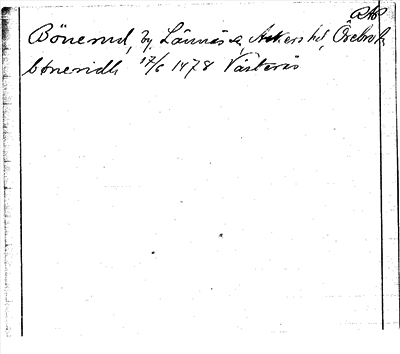 RAP
Bönerud, by, Lännäs sn, Askers hd, Örebro l.
böneridh 17/6 1478 Västerås